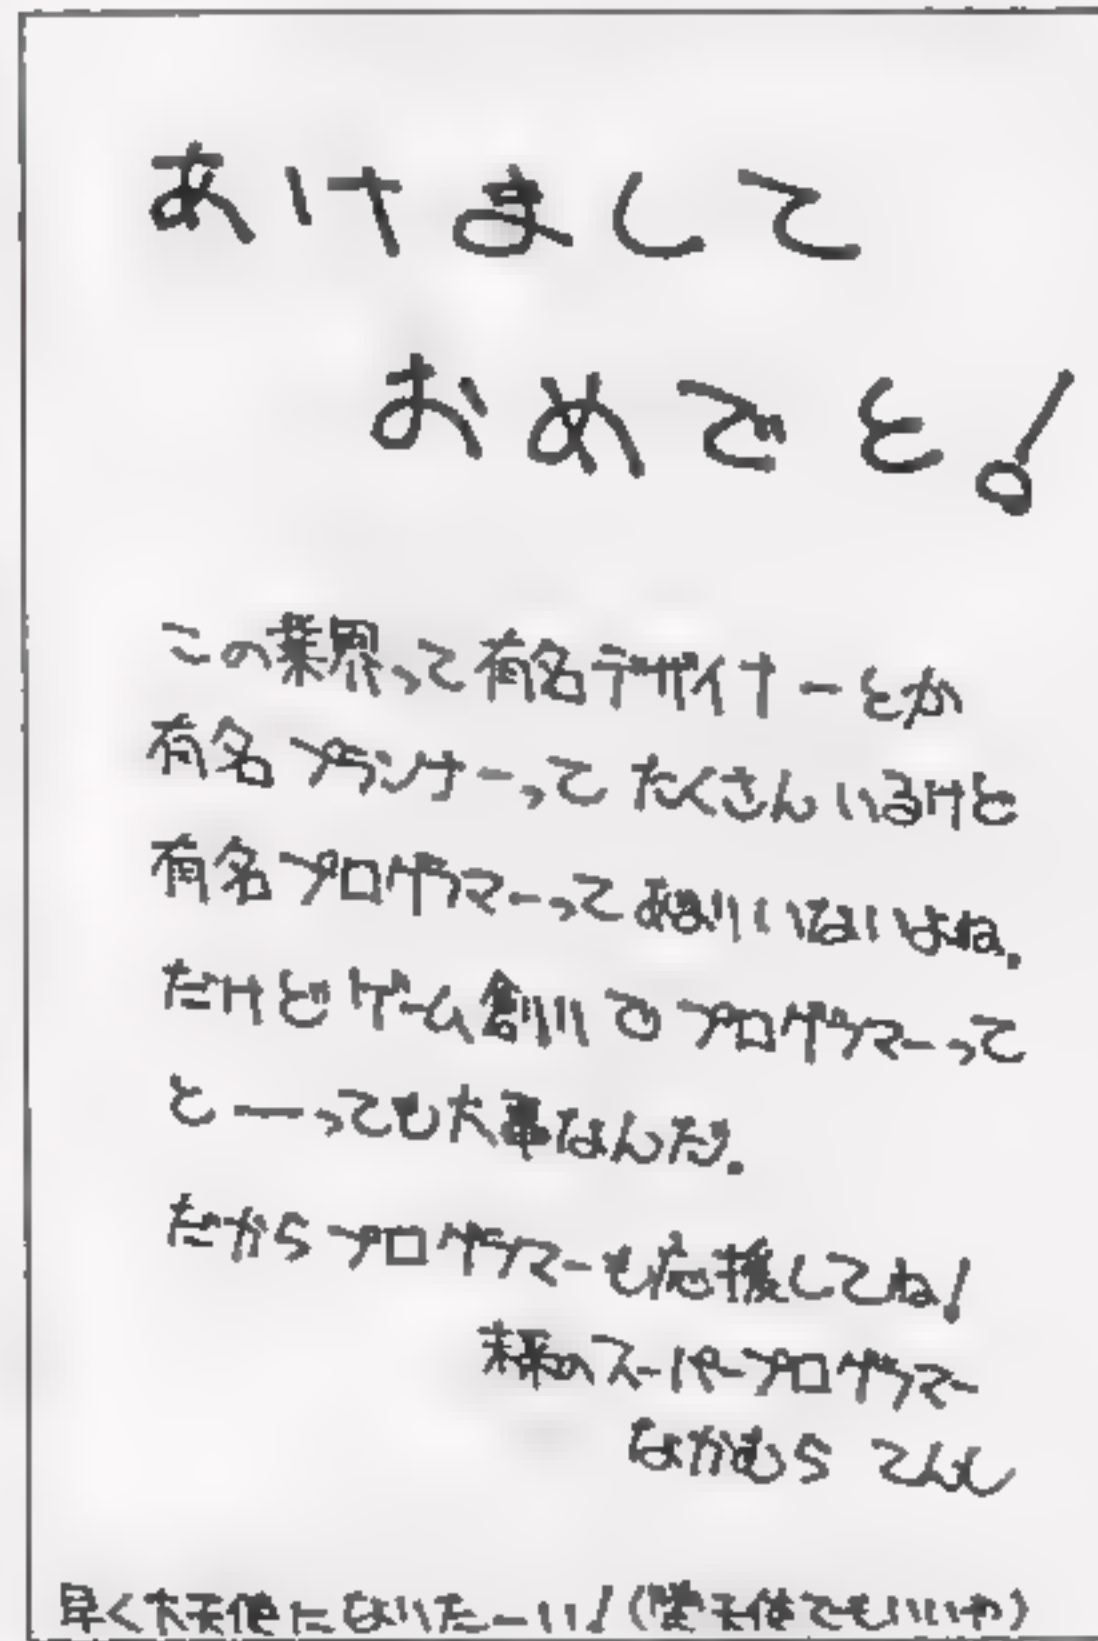 あけまして
おめでと!
この業界って有名デザイナーとか
有名プランナーってたくさんいるけど
有名プログラマーってあまりいないよね.
だけどゲーム創りでプログラマーって
と—っても大事なんだ.
だからプログラマーも応援してね!
未来のスーパープログラマー
なかむら てんし
早く大天使になりた—い!(堕天使でもいいや)